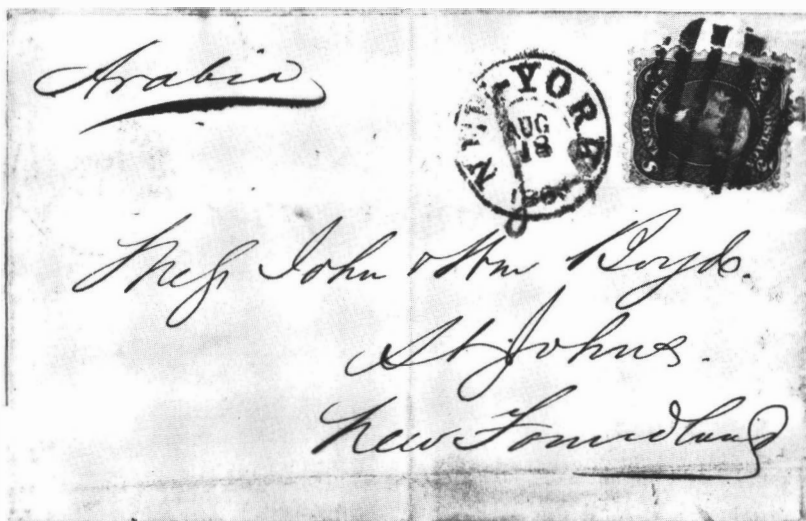 Arabia
NEW-YORK
AUG
18
186
Mess John & Wm Boyd.
St Johns.
New Foundland